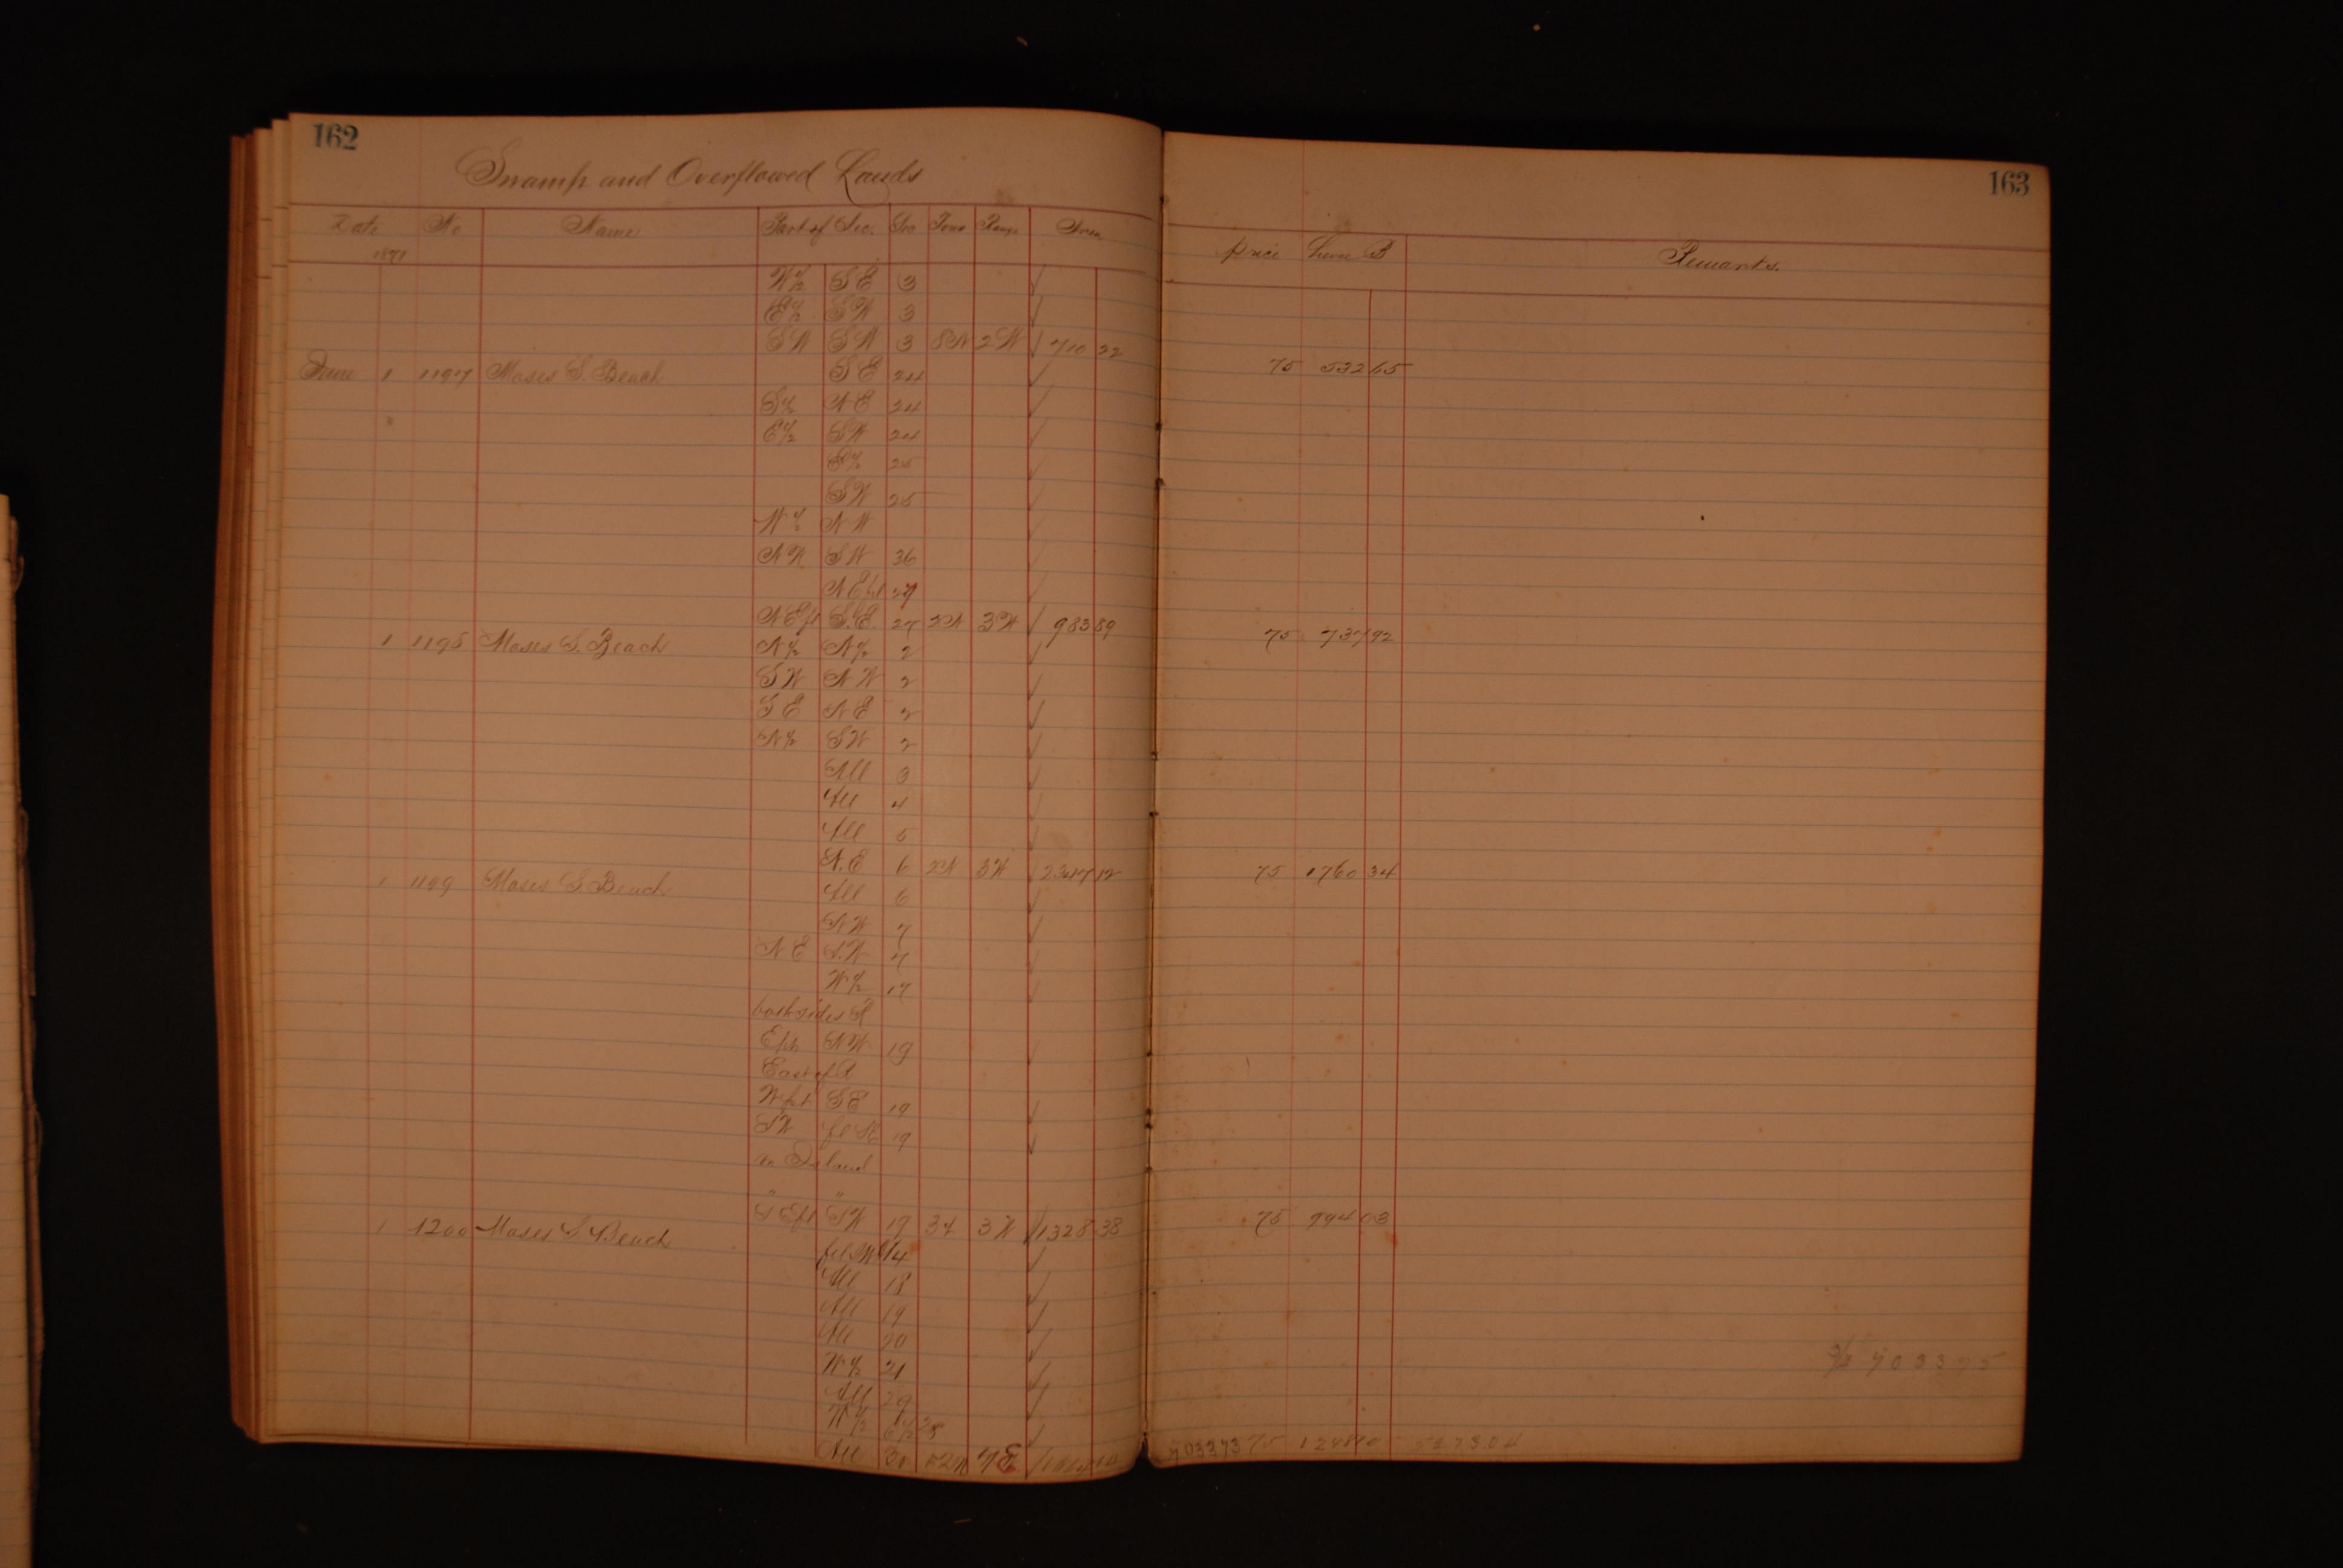 162
Swamp and Overflowed Lands
Date No Name Part of Sec. Sec Town Range Area
1871
W½ SE 3
E½ SW 3
SW SW 3 8N 2W 710 22
June 1 1197 Moses S. Beach SE 24
S½ NE 24
E½ SW 24
25
SW 25
W½ NW
NW SW 36
27
S.E. 27 2N 3W 983 89
1 1198 Moses S. Beach N½ N½ 2
SW NW 2
SE NE 2
N½ SW 2
All 3
All 4
All 5
N.E 6 2N 3W 2347 12
1 1199 Moses S. Beach All 6
NW 7
NE S.W 7
W½ 17
both sides R
NW 19
East of R
W pt SE 19
SW 19
an Island
" "
SW 19 3W 1328 38
1 1200 Moses S. Beach
14
All 18
All 19
All 20
W½ 21
All 29
W½
All 30
163
price Remarks.
75 532 65
75 737 92
75 1760 34
75 994 03
703373 75
703375